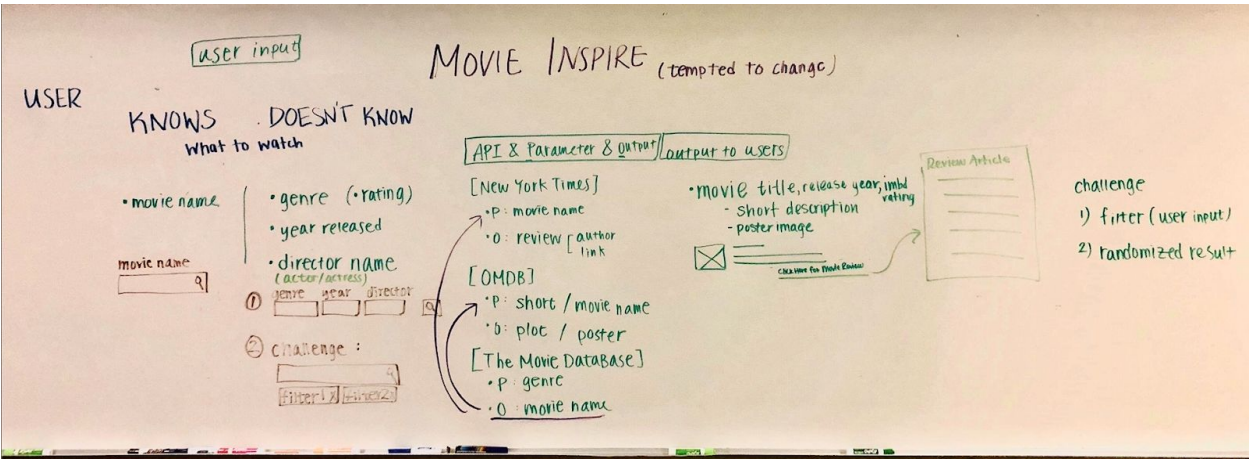 user input
MOVIE INSPIRE (tempted to change)
USER
KNOWS DOESN'T KNOW
What to watch
• movie name
movie name
• genre (• rating)
• year released
• director name
(actor/actress)
① genre year director
② challenge :
filter1 x filter2
API & Parameter & Output
[New York Times]
• P: movie name
• O: review [author
link
[OMDB]
• P: short / movie name
• O: plot / poster
[The Movie DataBase]
• P: genre
• O: movie name
output to users
• movie title, release year, imbd
rating
- short description
- poster image
Click Here for Movie Review
Review Article
challenge
1) filter (user input)
2) randomized result